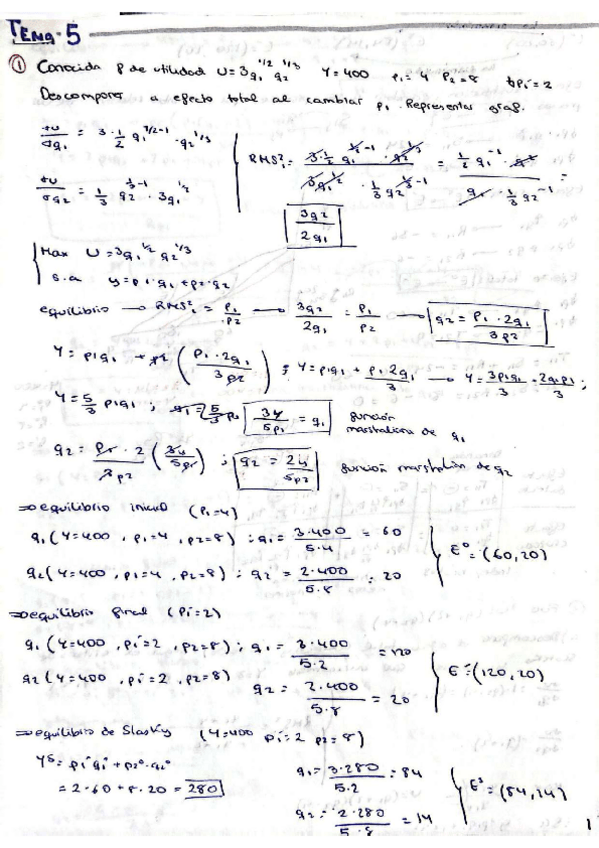 TEMA-5
① Conocida f de utilidad U=3q₁^1/2 q₂^1/3 Y=400 P₁=4 P₂=8 P₁'=2
Descomponer efecto total al cambiar p₁. Representar graf.
= 3·1/2 q₁^1/2-1 · q₂^1/3
RMS = 3·1/2 q₁^1/2-1 · q₂^1/3 / 3q₁^1/2 · 1/3 q₂^1/3-1 = 1/2 q₁^-1 · q₂ / q₁ · 1/3 q₂^-1 =
= 1/3 q₂^1/3-1 · 3q₁^1/2
3q₂ / 2q₁
Max U=3q₁^1/2 q₂^1/3
s.a y=p₁·q₁+p₂·q₂
equilibrio → RMS = P₁/P₂ → 3q₂/2q₁ = P₁/P₂ → q₂ = P₁·2q₁/3P₂
Y = p₁q₁ + p₂ (P₁·2q₁/3p₂) ; Y=p₁q₁ + p₁2q₁/3 → Y = 3p₁q₁/3 + 2q₁p₁/3 ;
Y = 5/3 p₁q₁ ; 3Y/5p₁ = q₁ función marshaliana de q₁
q₂ = P₁·2/3p₂ (3y/5p₁) ; q₂ = 2y/5p₂ función marshalian de q₂
⇒ equilibrio inicial (P₁=4)
q₁ (Y=400, p₁=4, p₂=8) ; q₁ = 3·400/5·4 = 60
E⁰ = (60,20)
q₂ (Y=400, p₁=4, p₂=8) ; q₂ = 2·400/5·8 = 20
⇒ equilibrio final (P₁'=2)
q₁ (Y=400, p₁'=2, p₂=8) ; q₁ = 3·400/5·2 = 120
E' = (120,20)
q₂ (Y=400, p₁'=2, p₂=8) q₂ = 2·400/5·8 = 20
⇒ equilibrio de Slasky (Y=400 p₁'=2 p₂=8)
Yˢ = p₁'q₁⁰ + p₂⁰·q₂⁰
q₁ = 3·280/5·2 = 84
= 2·60 + 8·20 = 280
Eˢ = (84,14)
q₂ = 2·280/5·8 = 14
1